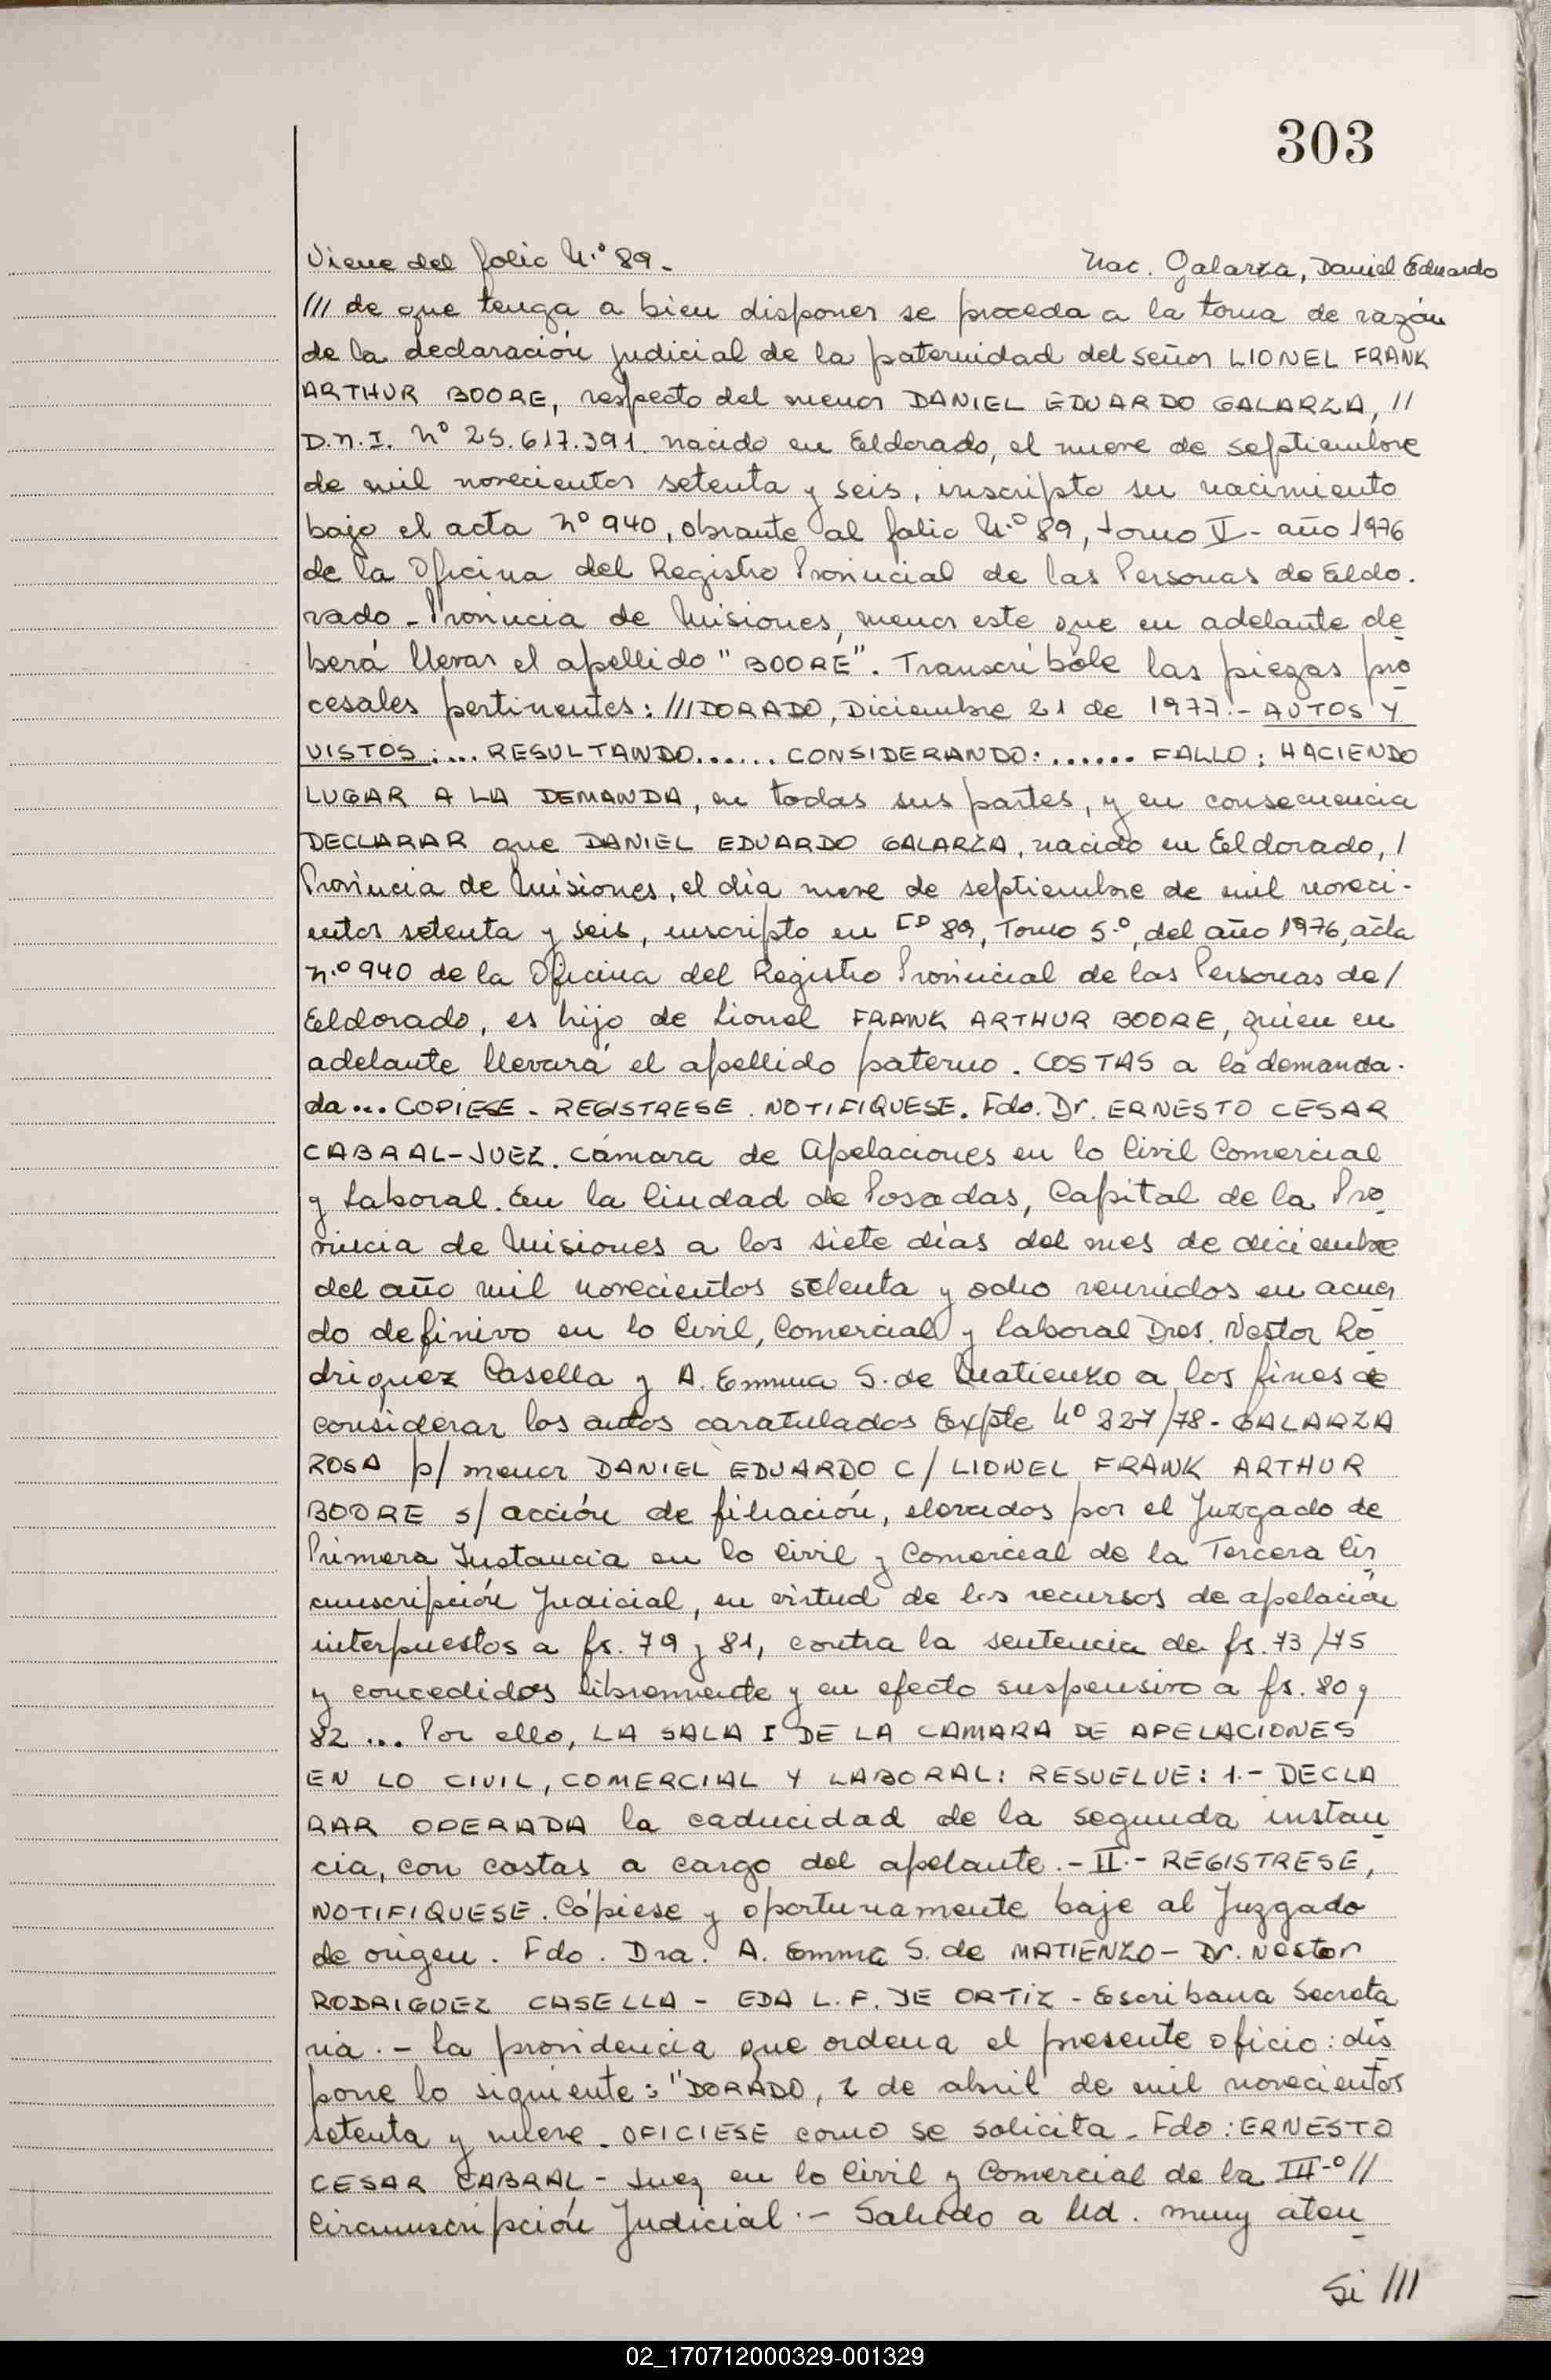 303
Viene del folio N.º 89.- Nac. Galarza, Daniel Eduardo
/// de que tenga a bien disponer se proceda a la toma de razón
de la declaración judicial de la paternidad del señor LIONEL FRANK
ARTHUR BOORE, respecto del menor DANIEL EDUARDO GALARZA, //
D.N.I. Nº 25.617.391. nacido en Eldorado, el nueve de septiembre
de mil novecientos setenta y seis, inscripto su nacimiento
bajo el acta nº 940, obrante al folio N.º 89, tomo V - año 1976
de la Oficina del Registro Provincial de las Personas de Eldo.
rado - Provincia de Misiones, menor este que en adelante de
berá llevar el apellido "BOORE". Transcríbole las piezas pro
cesales pertinentes: ///DORADO, Diciembre 21 de 1977.- AUTOS Y
VISTOS:... RESULTANDO...... CONSIDERANDO:...... FALLO: HACIENDO
LUGAR A LA DEMANDA, en todas sus partes, y en consecuencia
DECLARAR que DANIEL EDUARDO GALARZA, nacido en Eldorado, /
Provincia de Misiones, el día nueve de septiembre de mil noveci-
entos setenta y seis, inscripto en Fº 89, Tomo 5.º, del año 1976, acta
n.º 940 de la Oficina del Registro Provincial de las Personas de /
Eldorado, es hijo de Lionel FRANK ARTHUR BOORE, quien en
adelante llevará el apellido paterno. COSTAS a la demanda.
da... COPIESE - REGISTRESE. NOTIFIQUESE. Fdo. Dr. ERNESTO CESAR
CABRAL-JUEZ. Cámara de Apelaciones en lo Civil Comercial
y Laboral. En la Ciudad de Posadas, Capital de la Pro
vincia de Misiones a los siete días del mes de diciembre
del año mil novecientos setenta y ocho reunidos en acuer
do definivo en lo Civil, Comercial y Laboral Dres. Nestor Ro
driguez Casella y A. Emma S. de Matienzo a los fines de
considerar los autos caratulados Expte Nº 227/78 - GALARZA
ROSA p/ menor DANIEL EDUARDO C/ LIONEL FRANK ARTHUR
BOORE s/ acción de filiación, elevados por el Juzgado de
Primera Instancia en lo Civil y Comercial de la Tercera Cir
cunscripción Judicial, en virtud de los recursos de apelación
interpuestos a fs. 79 y 81, contra la sentencia de fs. 73/75
y concedidos libremente y en efecto suspensivo a fs. 80 y
82 ... Por ello, LA SALA I DE LA CAMARA DE APELACIONES
EN LO CIVIL, COMERCIAL Y LABORAL: RESUELVE: 1.- DECLA
RAR OPERADA la caducidad de la segunda instan
cia, con costas a cargo del apelante.- II.- REGISTRESE,
NOTIFIQUESE. Cópiese y oportunamente baje al Juzgado
de origen. Fdo. Dra. A. Emma S. de MATIENZO - Dr. Nestor
RODRIGUEZ CASELLA - EDA L. F. DE ORTIZ - Escribana Secreta
ria.- La providencia que ordena el presente oficio: dis
pone lo siguiente: "DORADO, 2 de abril de mil novecientos
setenta y nueve. OFICIESE como se solicita. Fdo: ERNESTO
CESAR CABRAL - Juez en lo Civil y Comercial de la III-º //
Circunscripción Judicial.- Saludo a Ud. muy aten
Si ///
02_170712000329-001329